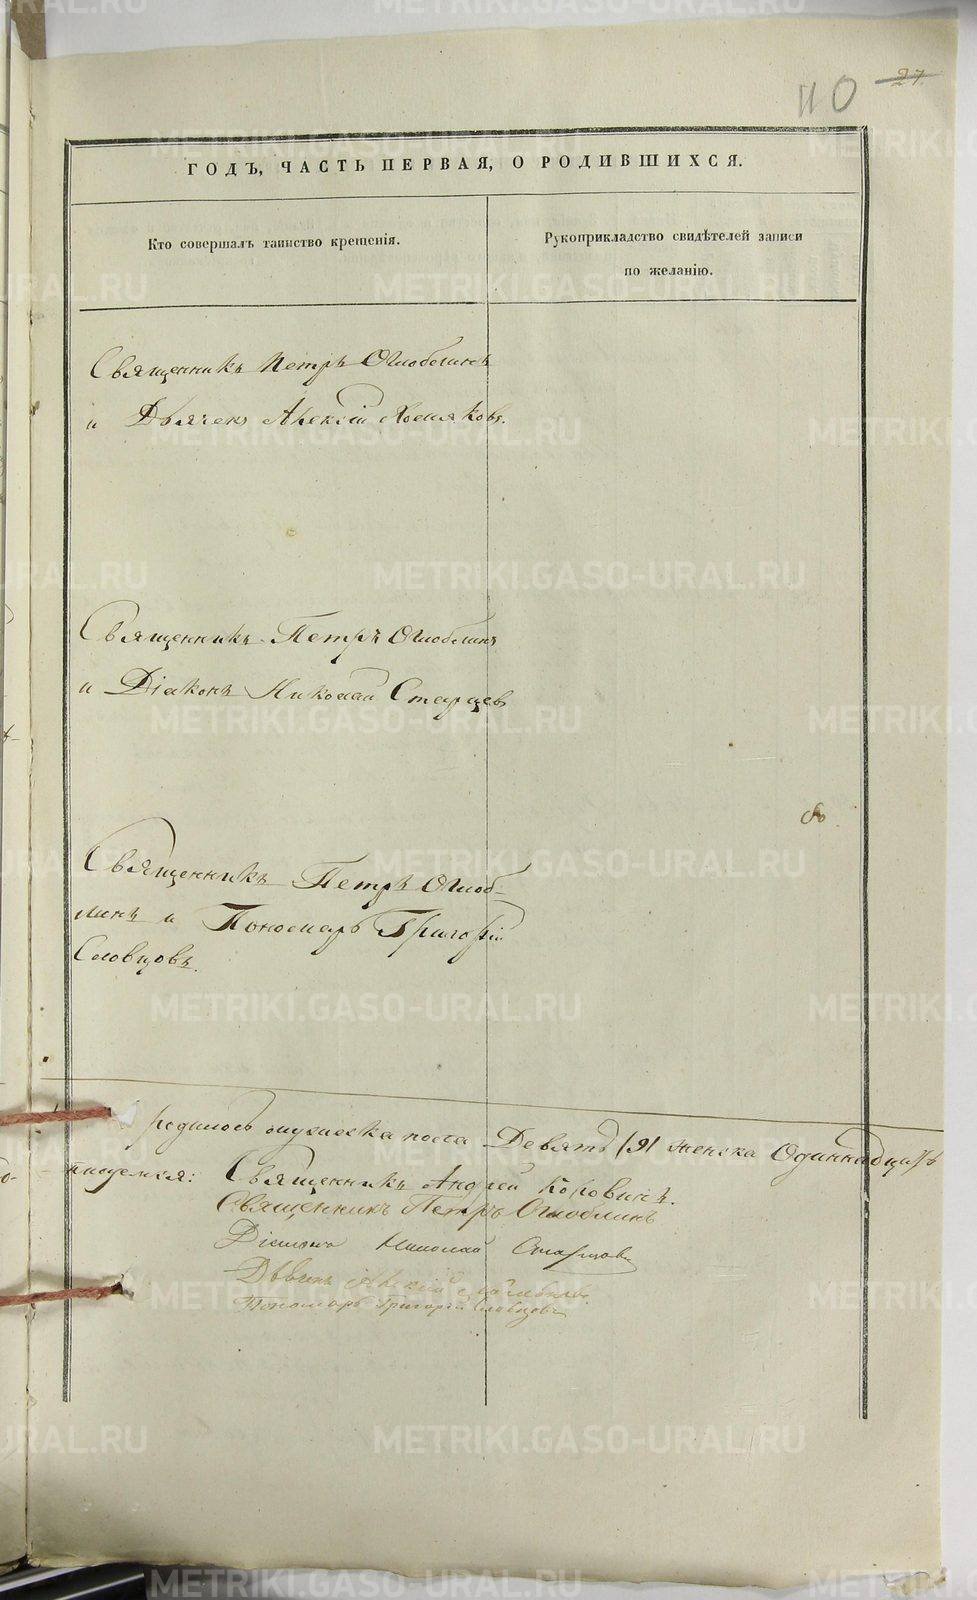 110 27
ГОДЪ, ЧАСТЬ ПЕРВАЯ, О РОДИВШИХСЯ.
Кто совершалъ таинство крещенія.
Рукоприкладство свидѣтелей записи
по желанію.
Священникъ Петръ Оглоблинъ
и Дьячекъ Алексій Хомяковъ.
Священникъ Петръ Оглоблинъ
и Діаконъ Николай Старцев
Священникъ Петръ Оглоб-
линъ и Пономарь Григорій
Словцовъ.
родилось мужеска пола Девять /9/ женска Одиннадцать
Священникъ Андрей Коровинъ.
Священникъ Петръ Оглоблинъ
Діаконъ Николай Старцовъ
Дьячекъ Алексій
Пономарь Григорій Словцовъ
METRIKI.GASO-URAL.RU